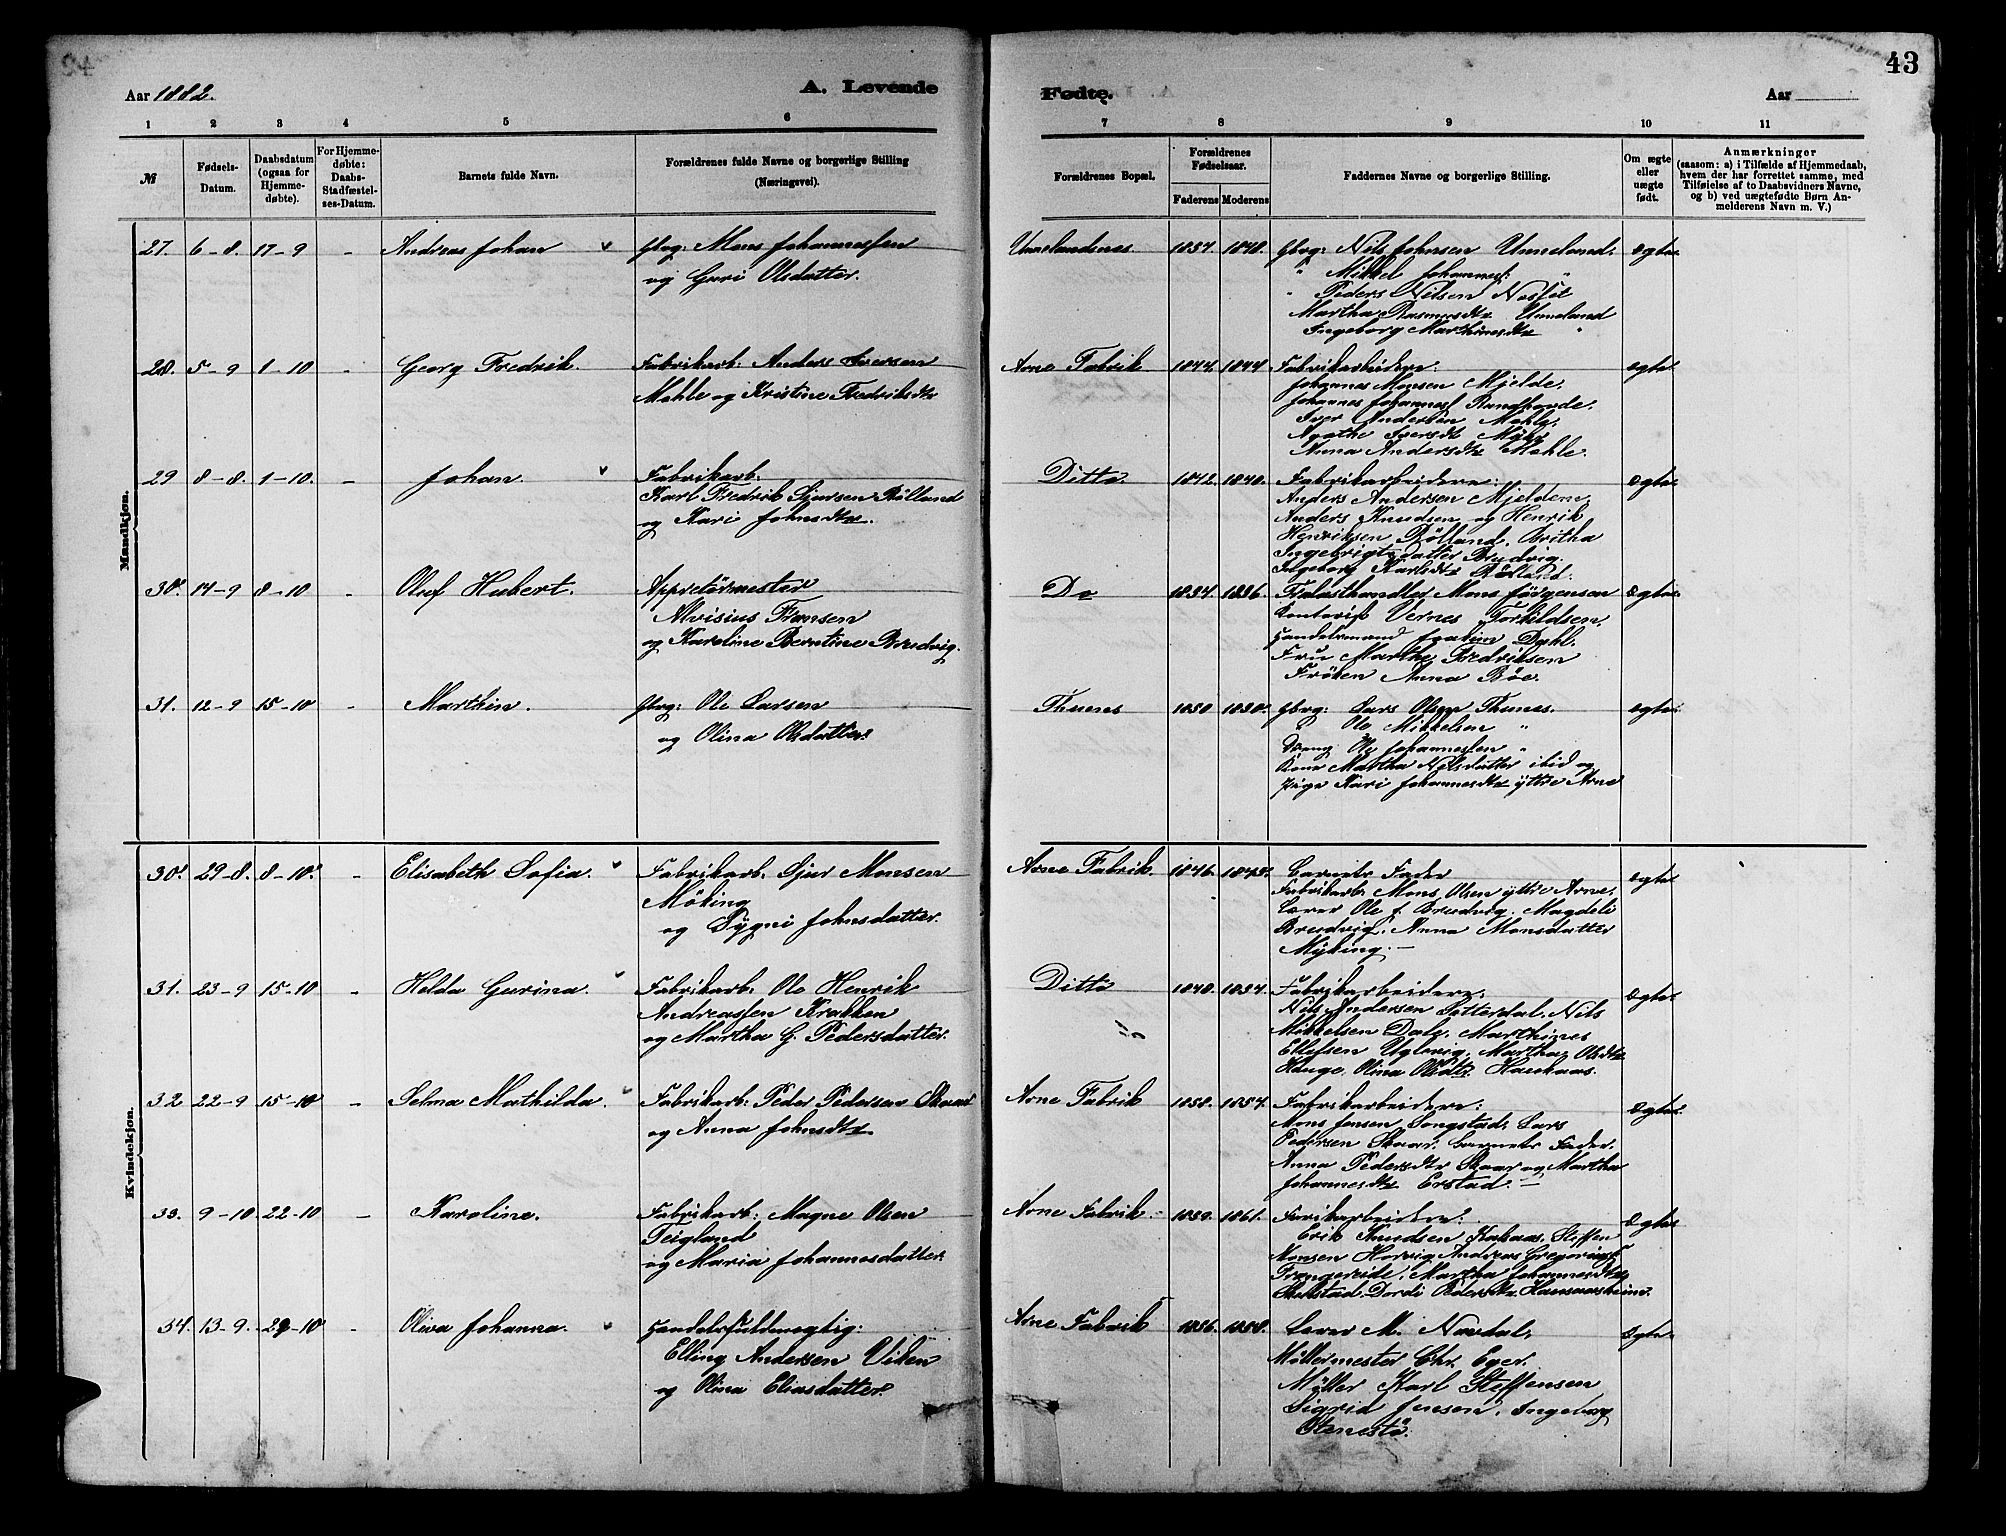 43
Aar 1882.
A. Levende
Fødte.
Aar
1 2 3 4 5 6 7 8 9 10 11
№
Fødsels-
Datum.
Daabsdatum
(ogsaa for
Hjemme-
døbte).
For Hjemme-
døbte:
Daabs-
Stadfæstel-
ses-Datum.
Barnets fulde Navn.
Forældrenes fulde Navne og borgerlige Stilling
(Næringsvei).
Forældrenes Bopæl.
Forældrenes
Fødselsaar.
Faderens Moderens
Faddernes Navne og borgerlige Stilling.
Om ægte
eller
uægte
født.
Anmærkninger
(saasom: a) i Tilfælde af Hjemmedaab,
hvem der har forrettet samme, med
Tilføielse af to Daabsvidners Navne,
og b) ved uægtefødte Børn An-
melderens Navn m. V.)
Mandkjøn.
27. 6-8. 17-9 - Andreas Johan
Gbrg: Mons Johannessen
og Guri Olsdatter.
Unnelandsnes 1837. 1840.
Gbrg: Nils Johnsen Unneland.
" Mikkel Johanness: "
" Peders Nilsen
Martha Rasmusdtr Unneland
Ingeborg Marthinesdtr "
Ægte
28. 5-9 1-10 - Georg Fredrik.
Fabrikarb: Anders Iversen
Mahle og Kristine Fredriksdtr
Arne Fabrik 1844. 1844.
Fabrikarbeidere:
Johannes Monsen Mjelde.
Johannes Johanness Rundhovde.
Iver Andersen Mahle.
Agathe Iversdtr
Anna Andersdtr Mahle.
ægte
29 8-8. 1-10. - Johan
Fabrikarb:
Karl Fredrik Sjursen Rølland
og Kari Johnsdtr.
Ditto 1842. 1840.
Fabrikarbeidere:
Anders Andersen Mjeldem.
Anders Knudsen og Henrik
Henriksen Rølland, Britha
Ingebrigtsdatter Brudvig.
Ingeborg Karlsdtr Rølland.
Ægte
30. 14-9 8-10 - Oluf Hubert.
Appretørmester
Alvisius Fransen
og Karoline Berntine Brudvig.
Do 1834. 1836.
Trælasthandler Mons Jørgensen
Kontorist Vernes Torkildsen.
Handelsmand Joakim Dahl.
Fru Marthe Fredriksen
Frøken Anna Bøe.
Ægte
31. 12-9 15-10 - Marthin.
Gbrg: Ole Larsen
og Olina Olsdatter.
Thunes 1850 1850.
Gbrg: Lars Olsen Thunes.
" Ole Mikkelsen "
Dreng Ole Johannessen "
Kone Martha Nilsdatter ibid og
Pige Kari Johannesdtr ytre Arne
Ægte
Kvindekjøn.
30. 29-8. 8-10. - Elisabeth Sofia.
Fabrikarb. Sjur Monsen
Møking
og Sygni Johnsdatter.
Arne Fabrik 1846.
Barnets Fader
Fabrikarb. Mons Olsen ytre Arne.
Lærer Ole J. Brudvig. Magdeli
Brudvig. Anna Monsdatter
Myking.
ægte
31. 23-9 15-10 - Helda Gurina.
Fabrikarb: Ole Henrik
Andreassen Krakken
og Martha G. Pedersdatter.
Ditto 1840. 1834.
Fabrikarbeidere:
Nils Andersen Sætterdal. Nils
Mikkelsen Dale. Marthines
Ellefsen Uglvig. Martha Olsdtr
Hauge. Olina Olsdtr Haukaas.
Ægte
32 22-9 15-10 - Selma Mathilda.
Fabrikarb: Peder Pedersen Skaar
og Anna Johnsdtr
Arne Fabrik 1858. 1857.
Fabrikarbeidere:
Mons Jensen Songstad. Lars
Pedersen Skaar. Barnets Fader.
Anna Pedersdtr Skaar og Martha
Johannesdtr Erstad.
Ægte
33. 9-10. 22-10 - Karoline.
Fabrikarb: Magne Olsen
Teigland
og Maria Johannesdatter.
Arne Fabrik. 1859. 1861.
Farikarbeidere:
Erik Knudsen Steffen
Monsen Horvig Andreas
Martha Johannesdtr
Dordi Pedersdtr
Ægte
34. 13-9. 29-10 - Oliva Johanna.
Handelsfuldmægtig:
Elling Andersen Viken
og Olina Eliasdatter.
Arne Fabrik 1856. 1858.
Lærer M. Navdal.
Møllermester Chr. Eger.
Møller Karl Steffensen
Sigrid Jensen. Ingeborg
Stenestø.
Ægte